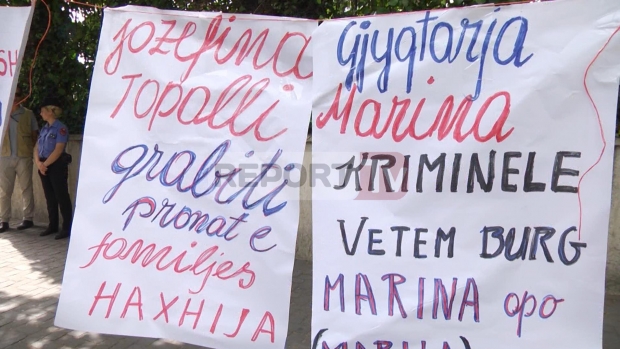 SH
Jozefina
Topalli
grabiti
pronat e
familjes
HAXHIJA
Gjyqtarja
Marina
KRIMINELE
VETEM BURG
MARINA opo
(MARIJA)
REPORT